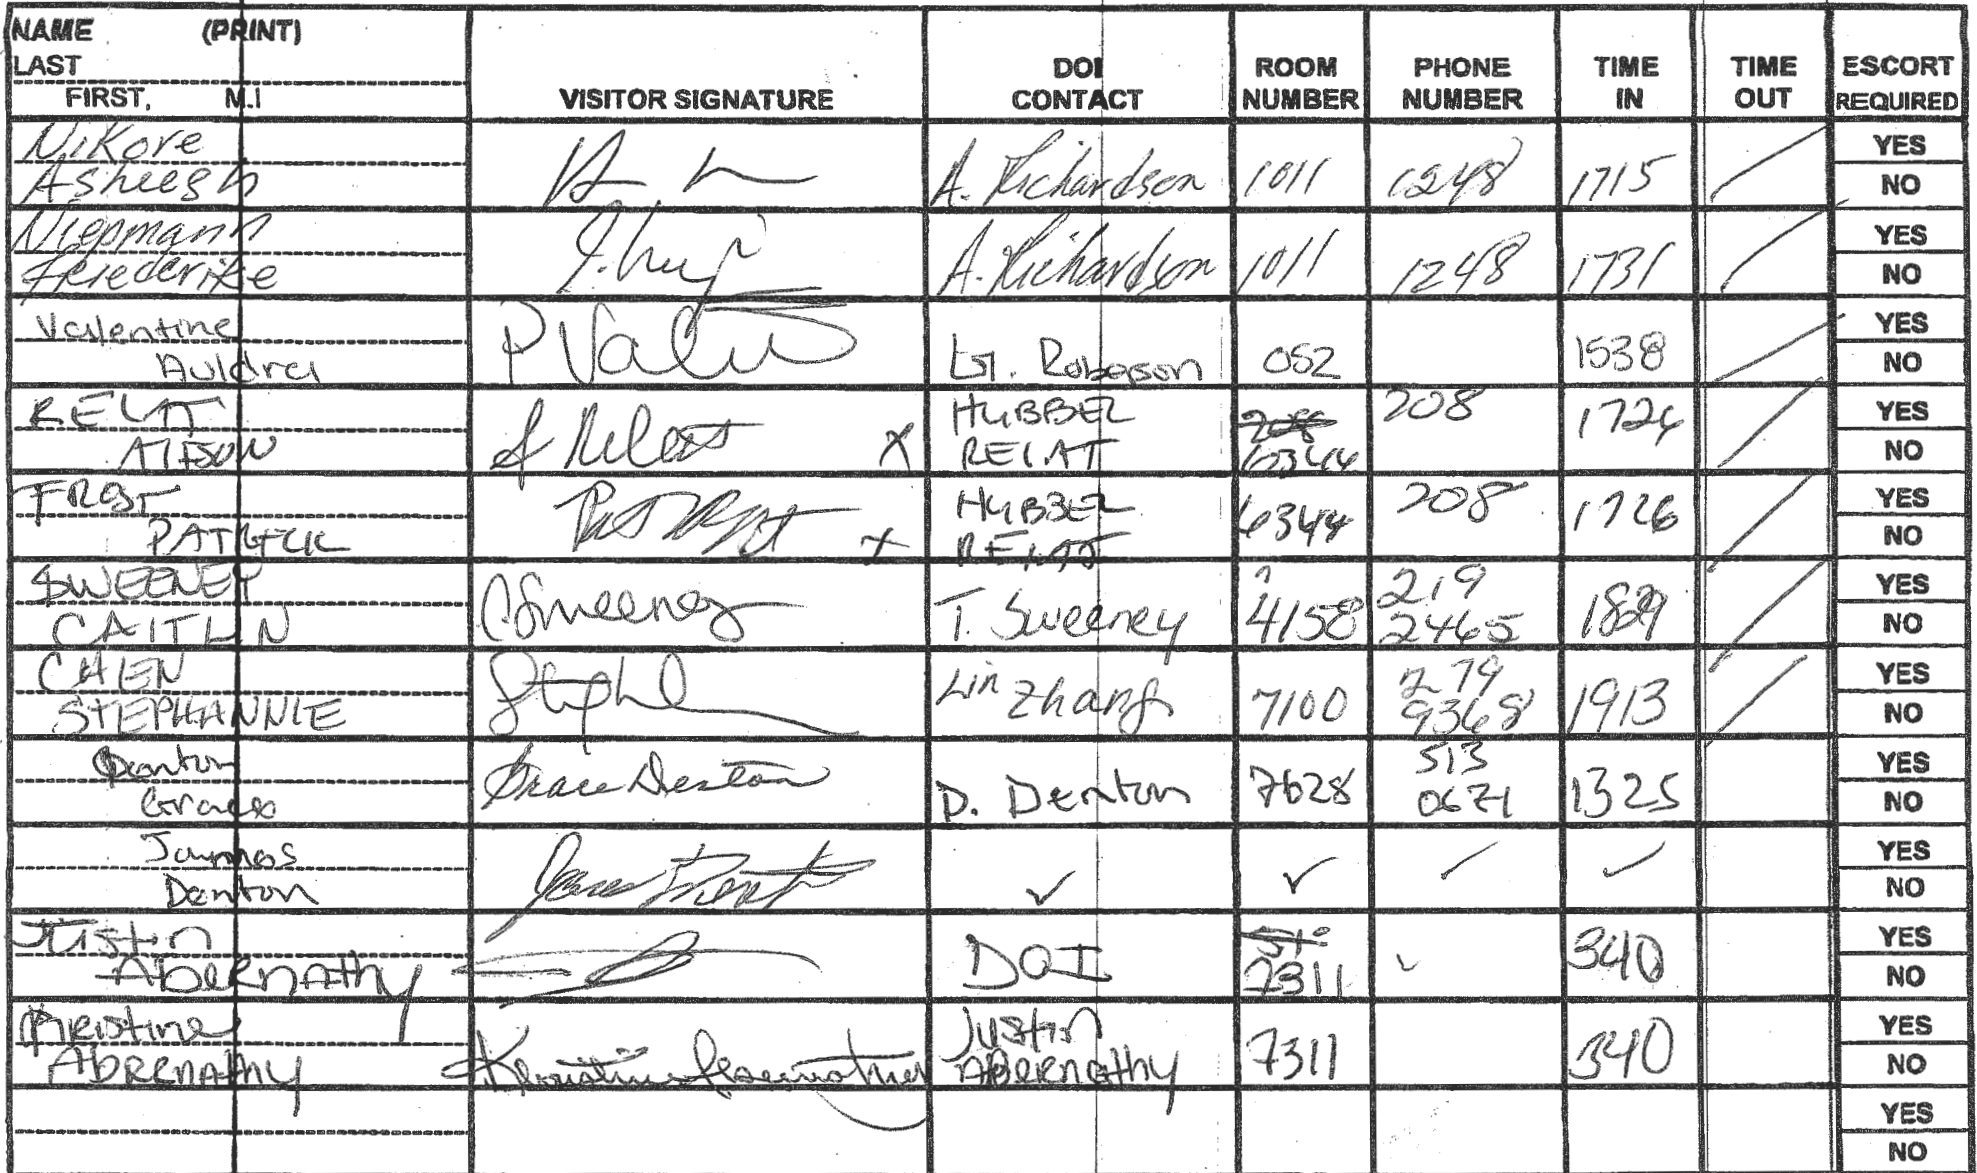 NAME (PRINT)
LAST
FIRST, M.I
VISITOR SIGNATURE
DOI
CONTACT
ROOM
NUMBER
PHONE
NUMBER
TIME
IN
TIME
OUT
ESCORT
REQUIRED
Nikore
Asheesh
A. Richardson 1011 1248 1715
YES
NO
Niepmann
Friederike
A. Richardson 1011 1248 1731
YES
NO
Valentine
Auldrey
P Valen
Roberson 052 1538
YES
NO
RELAT
ALISON
A Relat X
HUBBEL
RELAT
6344
208
1726
YES
NO
FROST
PATRICK
X
HUBBEL
RELAT
6344
208
1726
YES
NO
SWEENEY
CAITLIN
CSweeney
T. Sweeney
4158
219
2465
1829
YES
NO
CHEN
STEPHANNIE
Lin Zhang
7100
279
9368
1913
YES
NO
Denton
Grace
Grace Denton
D. Denton
7628
513
0671
1325
YES
NO
James
Denton
James Denton
✓ ✓ ✓ ✓
YES
NO
Justin
ABERNAthy
DOI
7311
✓
340
YES
NO
Kristine
ABRENAthy
Justin
ABERNAthy
7311
340
YES
NO
YES
NO